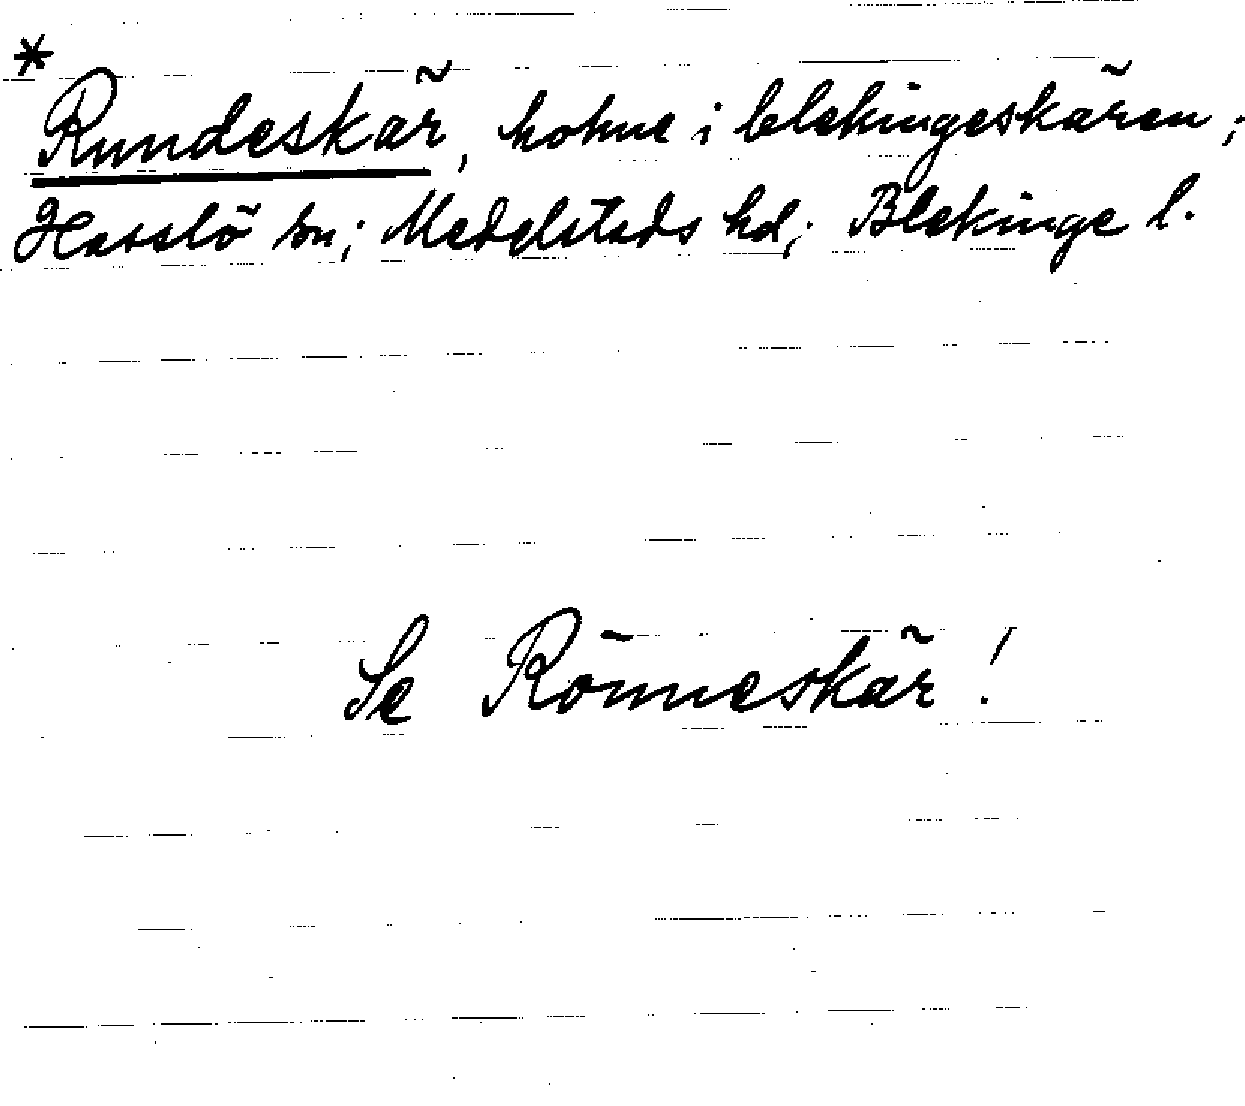 *
Rundeskär, holme i blekingeskären;
Hasslö sn; Medelstads hd; Blekinge l.
Se Rönneskär!